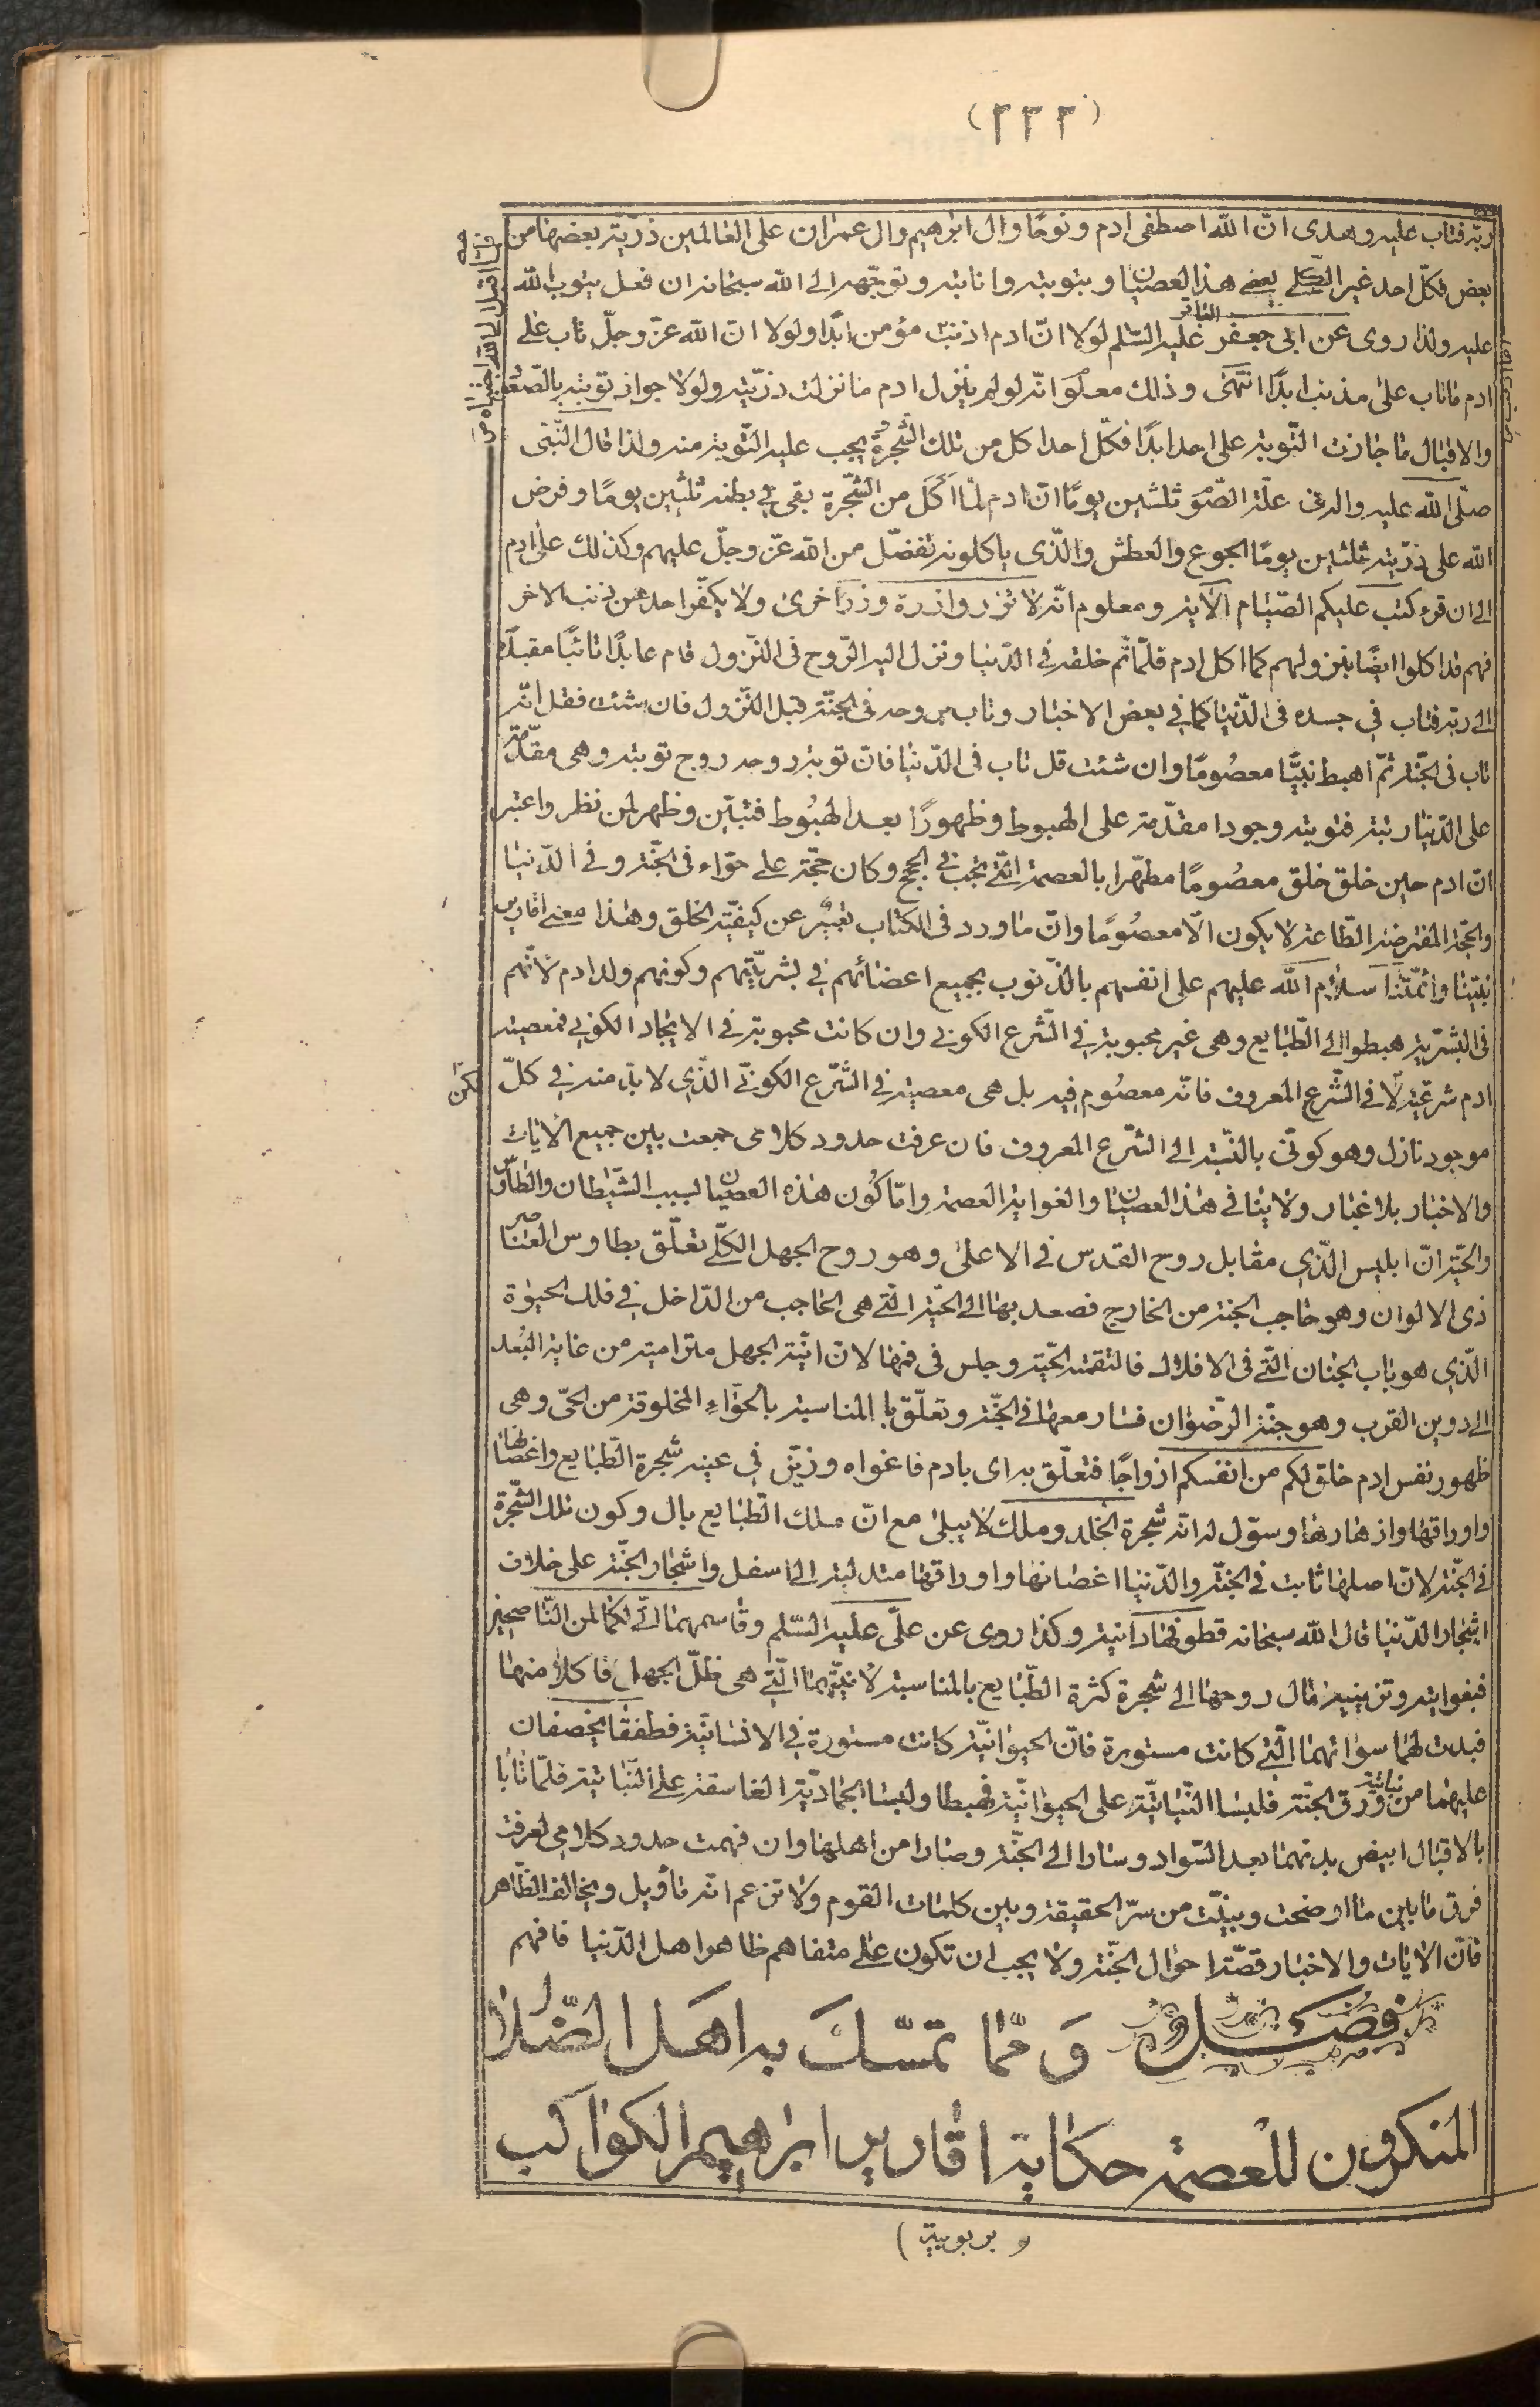 (٢٣٢)
ربه فتاب عليه وهدى انّ الله اصطفى ادم ونوحًا وال ابرهيم وال عمران على العالمين ذرّيّة بعضها من
بعض فكلّ احد غير الكلّي بعض هذا العصيان وبتوبته وانابته وتوجّهه الى الله سبحانه ان فعل يتوب الله
عليه ولذا روى عن ابى جعفر الباقر عليه السّلم لولا انّ ادم اذنب مؤمن ابدًا ولولا انّ الله عزّ وجلّ تاب على
ادم ماتاب على مذنب ابدًا انتهى وذلك معلوم انّه لو لم ينزل ادم ما نزلت ذرّيّته ولولا جواز توبته بالصّعود
والاقبال ما جازت التّوبة على احد ابدًا فكلّ احد اكل من تلك الشّجرة يجب عليه التّوبة منه ولذا قال النّبىّ
صلّى الله عليه واله في علّة الصّوم ثلثين يومًا انّ ادم لمّا اكل من الشّجرة بقى في بطنه ثلثين يومًا وفرض
الله على ذرّيّته ثلثين يومًا الجوع والعطش والّذى ياكلونه تفضّل من الله عزّ وجلّ عليهم وكذلك على ادم
الى ان قرء كتب عليكم الصّيام الاية ومعلوم انّه لا تزر وازرة وزر اخرى ولا يكفّر احد عن ذنب الاخر
فهم قد اكلوا ايضًا بنزولهم كما اكل ادم فلمّا تمّ خلقه في الدّنيا ونزل اليه الرّوح فى النّزول قام عابدًا تائبًا مقبلًا
الى ربه فتاب في جسده فى الدّنيا كما في بعض الاخبار وتاب روحه فى الجنّة قبل النّزول فان شئت فقل انّه
تاب فى الجنّة ثمّ اهبط نبيًّا معصومًا وان شئت قل تاب فى الدّنيا فانّ توبة روحه روح توبته وهى مقدّمة
على الدّنيا رتبة فتوبته وجودا مقدّمة على الهبوط وظهورًا بعد الهبوط فتبيّن وظهر لمن نظر واعتبر
انّ ادم حين خلق خلق معصومًا مطهّرا بالعصمة الّتى تجب في الحجج وكان حجّة على حوّاء فى الجنّة وفى الدّنيا
والحجّة المفترض الطّاعة لا يكون الّا معصومًا وانّ ما ورد فى الكتاب تعبير عن كيفيّة الخلق وهذا معنى اقارير
نبيّنا وائمّتنا سلام الله عليهم على انفسهم بالذّنوب بجميع اعضائهم في بشريّتهم وكونهم ولد ادم لانّهم
فى البشريّة هبطوا الى الطّبايع وهى غير محبوبة في الشّرع الكونى وان كانت محبوبة فى الايجاد الكونى فمعصية
ادم شرعيّة لا فى الشّرع المعروف فانّه معصوم فيه بل هى معصية فى الشّرع الكونىّ الّذى لا بدّ منه في كلّ
موجود نازل وهو كونّى بالنّسبة الى الشّرع المعروف فان عرفت حدود كلامى جمعت بين جميع الايات
والاخبار بلا غبار ولا ينافى هذا العصيان والغواية العصمة وامّا كون هذه العصيان بسبب الشّيطان والطّاوس
والحيّة انّ ابليس الّذى مقابل روح القدس فى الاعلى وهو روح الجهل الكلّى تعلّق بطاوس العناصر
ذى الالوان وهو حاجب الجنة من الخارج فصعد بها الى الحيّة الّتى هى الحاجب من الدّاخل في فلك الحيوة
الّذى هو باب الجنان الّتى فى الافلاك فالتقمته الحيّة وجلس فى فمها لانّ انيّة الجهل مترامية من غاية البعد
الى دوين القرب وهو جنّة الرّضوان فسار معها فى الجنّة وتعلّق بالمناسبة بالحوّاء المخلوقة من الحىّ وهى
ظهور نفس ادم خلق لكم من انفسكم ازواجًا فتعلّق به اى بادم فاغواه وزيّن في عينه شجرة الطّبايع واغصانها
واوراقها وازهارها وسوّل له انّه شجرة الخلد وملك لا يبلى مع انّ ملك الطّبايع بال وكون تلك الشّجرة
فى الجنّة لانّ اصلها ثابت فى الجنّة والدّنيا اغصانها واوراقها متدلية الى اسفل واشجار الجنّة على خلاف
اشجار الدّنيا قال الله سبحانه قطوفها دانية وكذا روى عن علىّ عليه السّلم وقاسمهما انّى لكما لمن النّاصحين
فبغوايته وتزيينه مال روحها الى شجرة كثرة الطّبايع بالمناسبة لانيّتهما الّتى هى ظلّ الجهل فاكلا منها
فبدت لهما سواتهما الّتى كانت مستورة فانّ الحيوانيّة كانت مستورة فى الانسانيّة فطفقا يخصفان
عليهما من ورق نباتيّة الجنّة فلبسا النّباتيّة على الحيوانيّة فهبطا ولبسا الجماديّة الغاسقة على النّباتية فلمّا تابا
بالاقبال ابيض بدنهما بعد السّواد وسارا الى الجنّة وصارا من اهلها وان فهمت حدود كلامى لعرفت
فرق ما بين ما اوضحت وبيّنت من سرّ الحقيقة وبين كلمات القوم ولا تزعم انّه تأويل ويخالف الظّاهر
فانّ الايات والاخبار قصّة احوال الجنّة ولا يجب ان تكون على متفاهم ظاهر اهل الدّنيا فافهم
فصل وممّا تمسّك به اهل الضّلال
المنكرون للعصمة حكاية اقارير ابرهيم الكواكب
بربوبية)